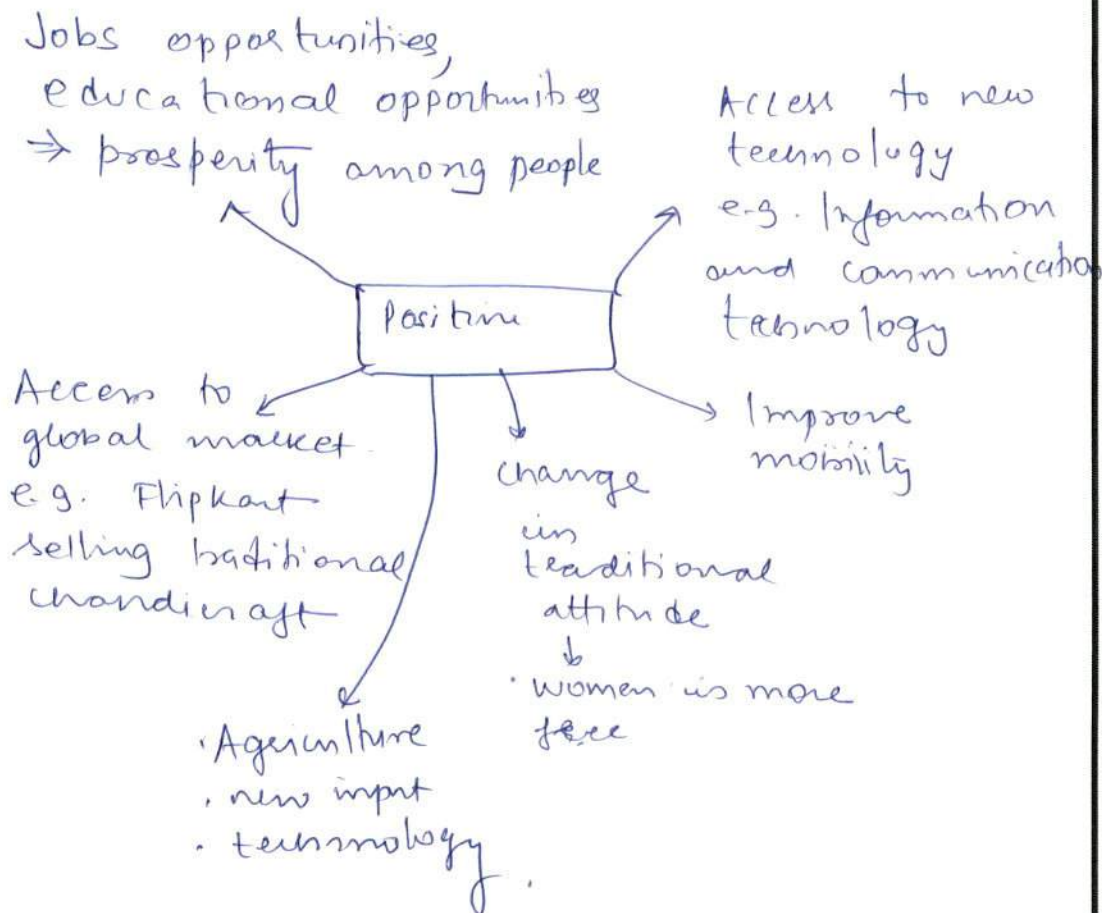 Jobs opportunities,
educational opportunities
⇒ prosperity among people
Access to new
technology
e.g. Information
and communication
technology
Positive
Access to
global market
e.g. Flipkart
selling traditional
handicraft
Change
in
traditional
attitude
↓
· women is more
free
Improve
mobility
· Agriculture
· new input
· technology.